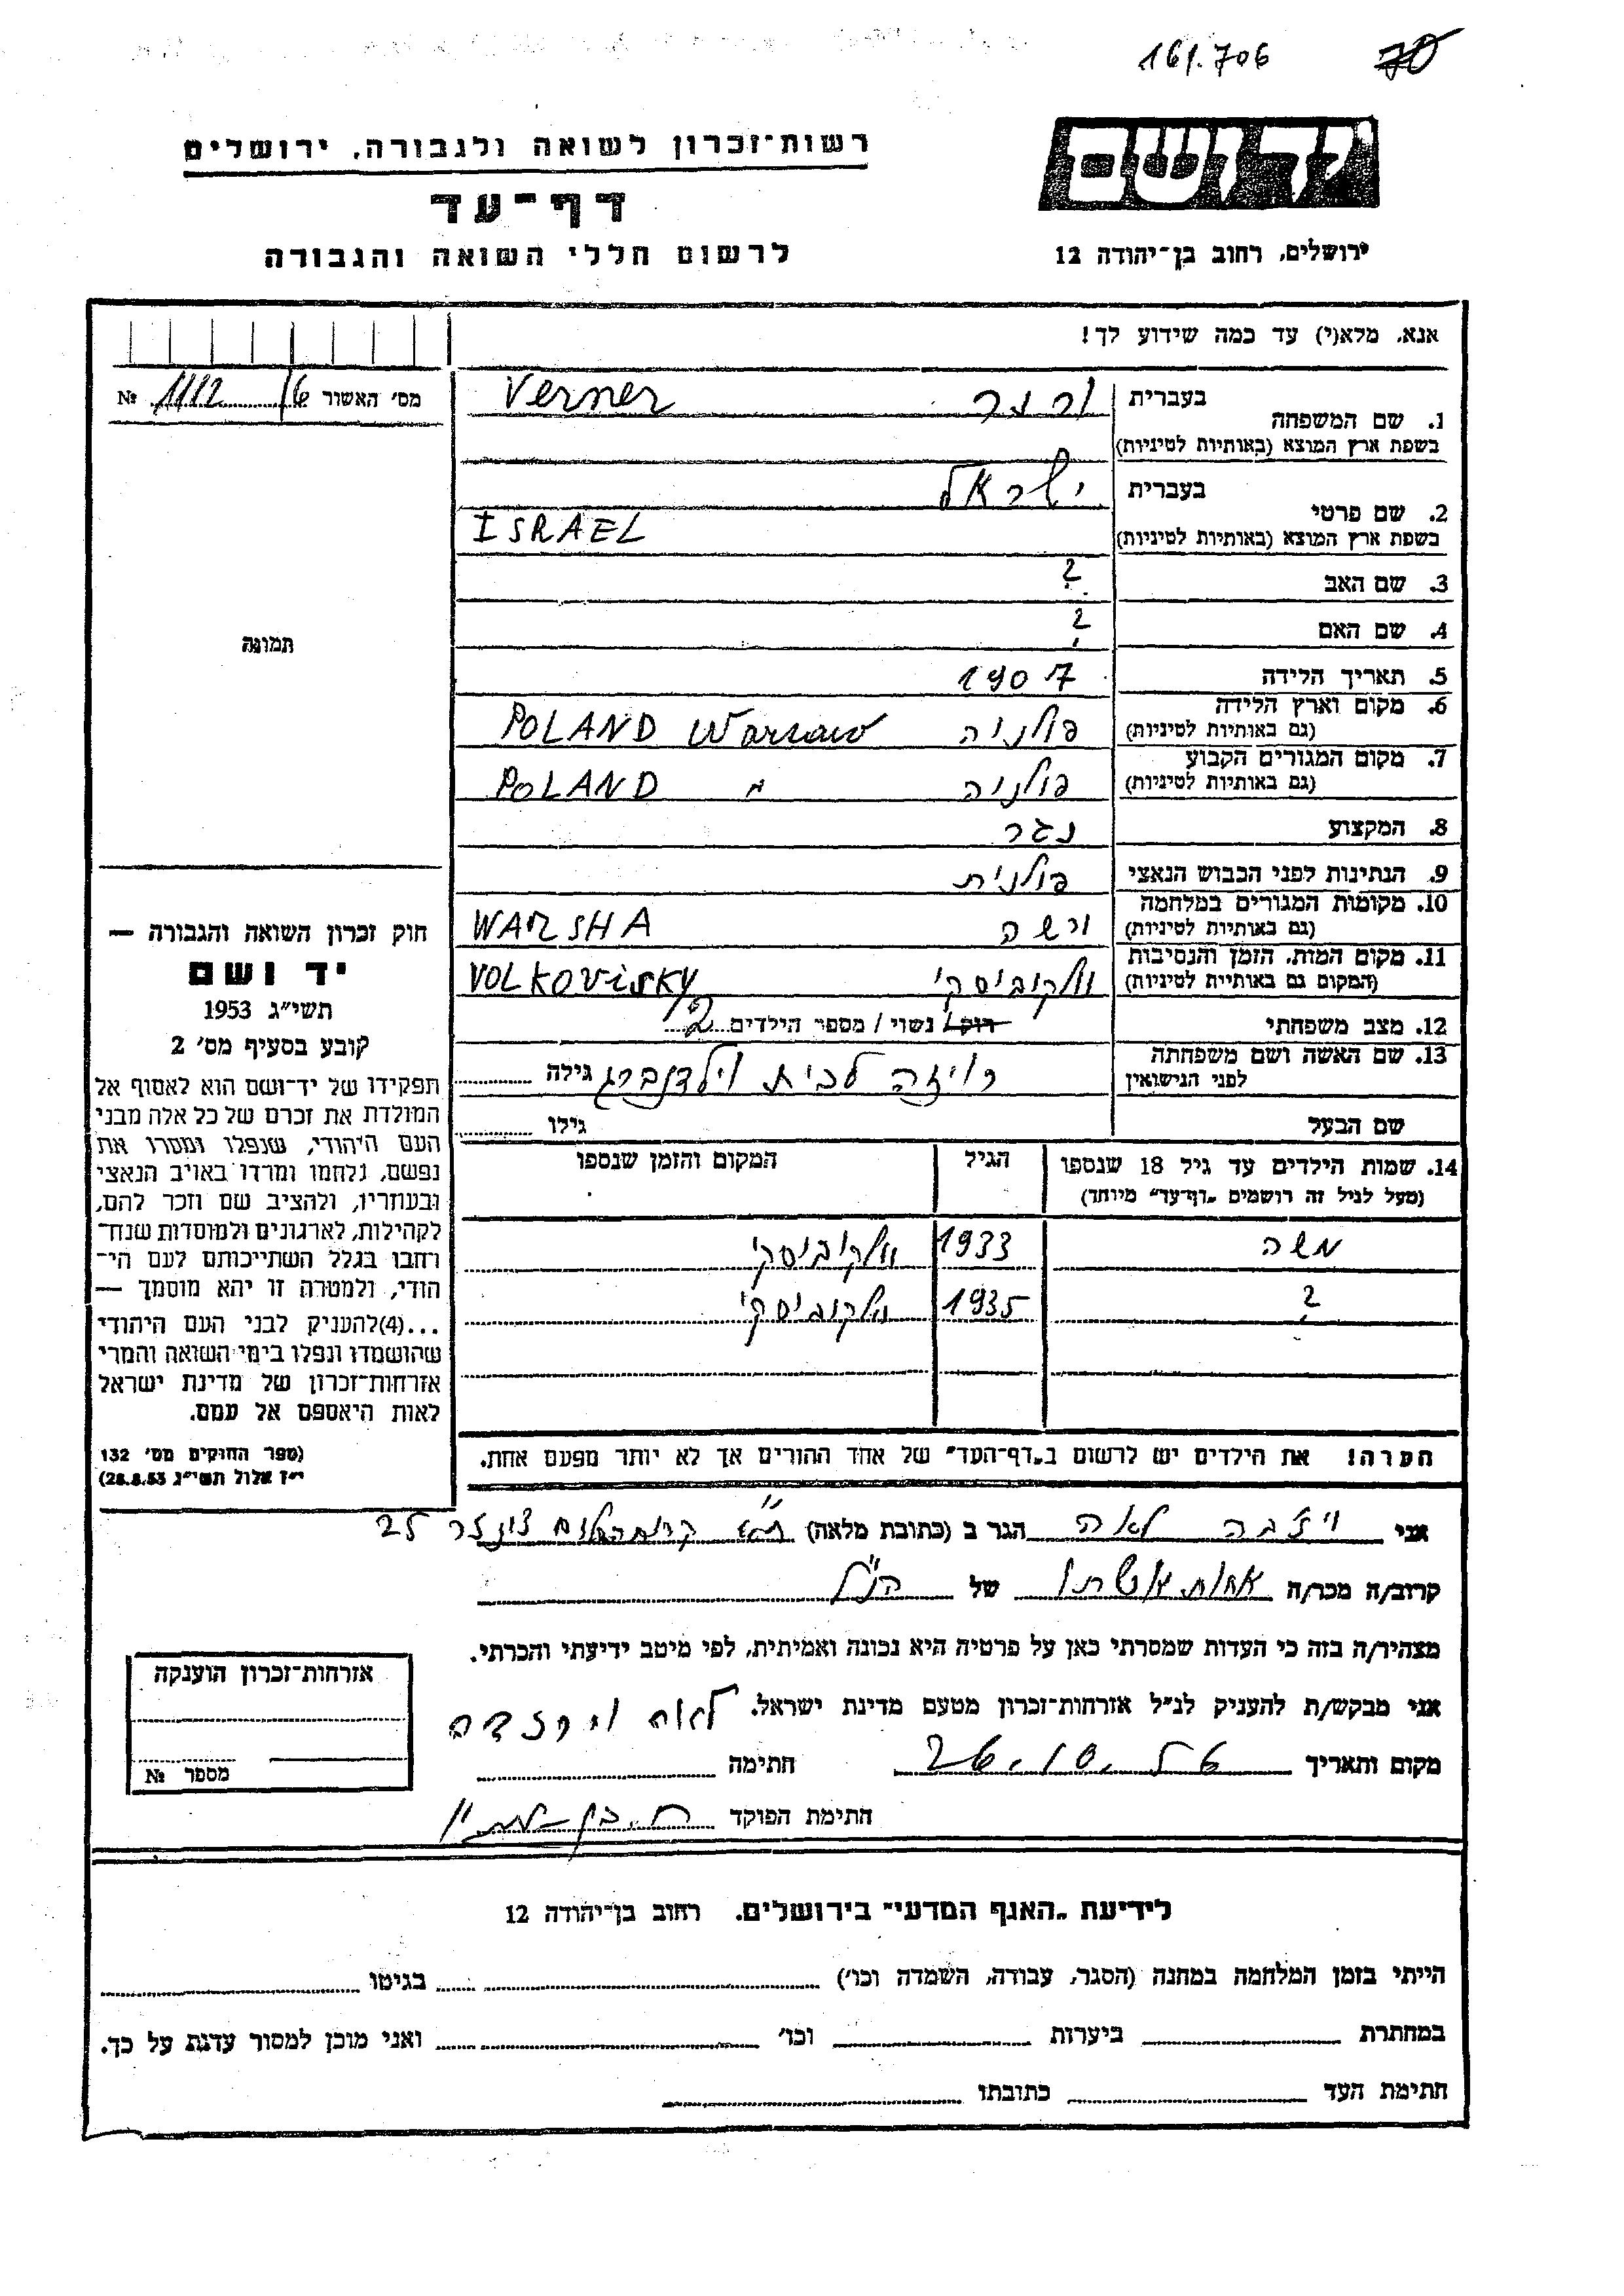 161.706
רשות־זכרון לשואה ולגבורה, ירושלים
דף־עד
לרשום חללי השואה והגבורה
יד ושם
ירושלים, רחוב בן־יהודה 12
אנא, מלא(י) עד כמה שידוע לך!
מס׳ האשור 16/1112 №
תמונה
1. שם המשפחה בעברית ורנר Verner
בשפת ארץ המוצא (באותיות לטיניות)
2. שם פרטי בעברית ישראל
בשפת ארץ המוצא (באותיות לטיניות) ISRAEL
3. שם האב ?
4. שם האם ?
5. תאריך הלידה 1907
6. מקום וארץ הלידה (גם באותיות לטיניות) פולניה POLAND Warsaw
7. מקום המגורים הקבוע (גם באותיות לטיניות) פולניה " POLAND
8. המקצוע נגר
9. הנתינות לפני הכבוש הנאצי פולנית
10. מקומות המגורים במלחמה (גם באותיות לטיניות) ורשה WARSHA
11. מקום המות, הזמן והנסיבות (המקום גם באותיות לטיניות) וולקוביסקי VOLKOVISKY
12. מצב משפחתי רוק/ נשוי / מספר הילדים 2
13. שם האשה ושם משפחתה לפני הנישואין רויזה לבית וילדנברג גילה
שם הבעל גילו
14. שמות הילדים עד גיל 18 שנספו הגיל המקום והזמן שנספו
(מעל לגיל זה רושמים „דף־עד״ מיוחד)
משה 1933 וולקוביסקי
? 1935 וולקוביסקי
הערה! את הילדים יש לרשום ב„דף־העד״ של אחד ההורים אך לא יותר מפעם אחת.
חוק זכרון השואה והגבורה —
יד ושם
תשי״ג 1953
קובע בסעיף מס׳ 2
תפקידו של יד־ושם הוא לאסוף אל
המולדת את זכרם של כל אלה מבני
העם היהודי, שנפלו ומסרו את
נפשם, נלחמו ומרדו באויב הנאצי
ובעוזריו, ולהציב שם וזכר להם,
לקהילות, לארגונים ולמוסדות שנח־
רבו בגלל השתייכותם לעם הי־
הודי, ולמטרה זו יהא מוסמך —
...(4)להעניק לבני העם היהודי
שהושמדו ונפלו בימי השואה והמרי
אזרחות־זכרון של מדינת ישראל
לאות היאספם אל עמם.
(ספר החוקים מס׳ 132
י״ז אלול תשי״ג 28.8.53)
אני לאה הגר ב (כתובת מלאה) 25
קרוב/ה מכר/ה אחות אשתו של הנ״ל
מצהיר/ה בזה כי העדות שמסרתי כאן על פרטיה היא נכונה ואמיתית, לפי מיטב ידיעתי והכרתי.
אני מבקש/ת להעניק לנ״ל אזרחות־זכרון מטעם מדינת ישראל.
מקום ותאריך חתימה לאה
חתימת הפוקד
אזרחות־זכרון הוענקה
מספר №
לידיעת „האגף המדעי״ בירושלים, רחוב בן־יהודה 12
הייתי בזמן המלחמה במחנה (הסגר, עבודה, השמדה וכו׳) בגיטו
במחתרת ביערות וכו׳ ואני מוכן למסור עדות על כך.
חתימת העד כתובתו